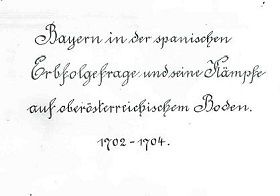 Bayern in der spanischen
Erbfolgefrage und seine Kämpfe
auf oberösterreichischem Boden.
1702-1704.